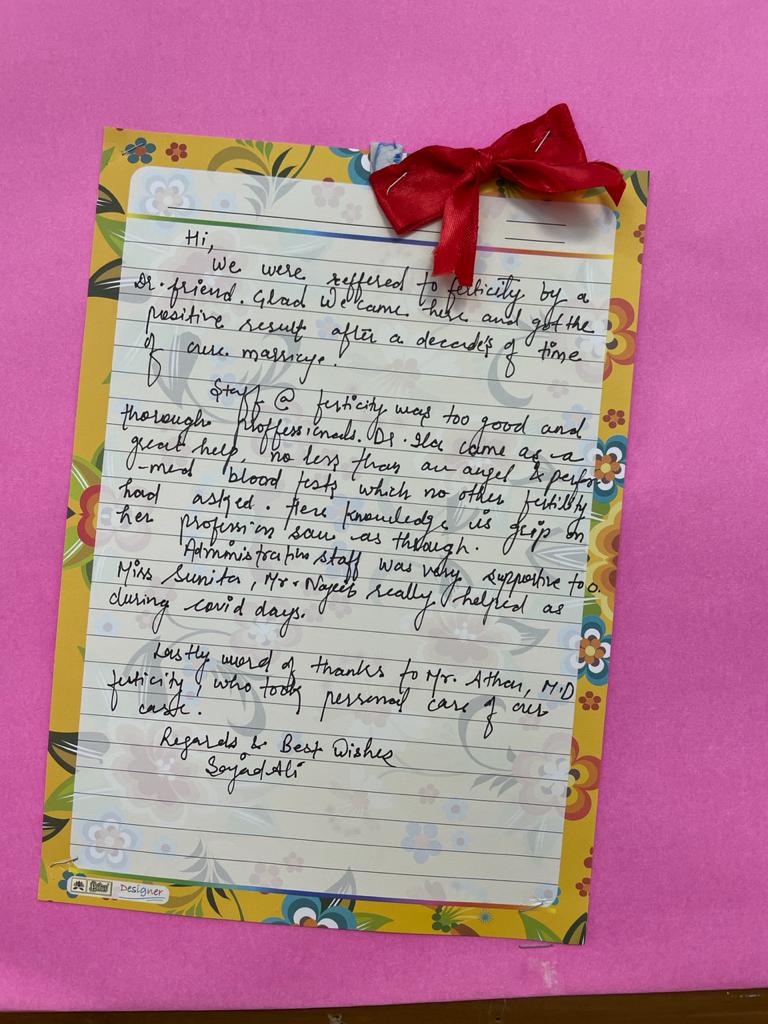 Hi,
We were reffered to ferticity by a
Dr. friend. Glad we came here and got the
positive result after a decade's of time
of our marriage.
Staff @ ferticity was too good and
thorough proffessionals. Dr. Ila came as a
great help, no less than an angel & perfor
-med blood tests which no other fertility
had asked. Hers knowledge is grip on
her profession saw as through.
Administrative staff was very supportive too.
Miss Sunita, Mr. Najeeb really helped as
during covid days.
Lastly word of thanks to Mr. Athar, M.D
ferticity, who took personal care of our
case.
Regards & Best Wishes
Sajad Ali
Designer